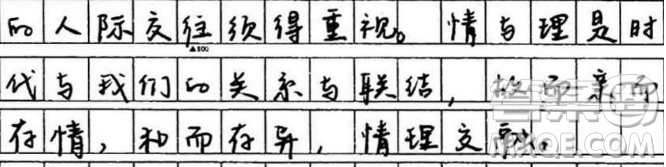 的人际交往须得重视。情与理是时
▲500
代与我们的关系与联结，故而亲而
存情，和而存异，情理交融。